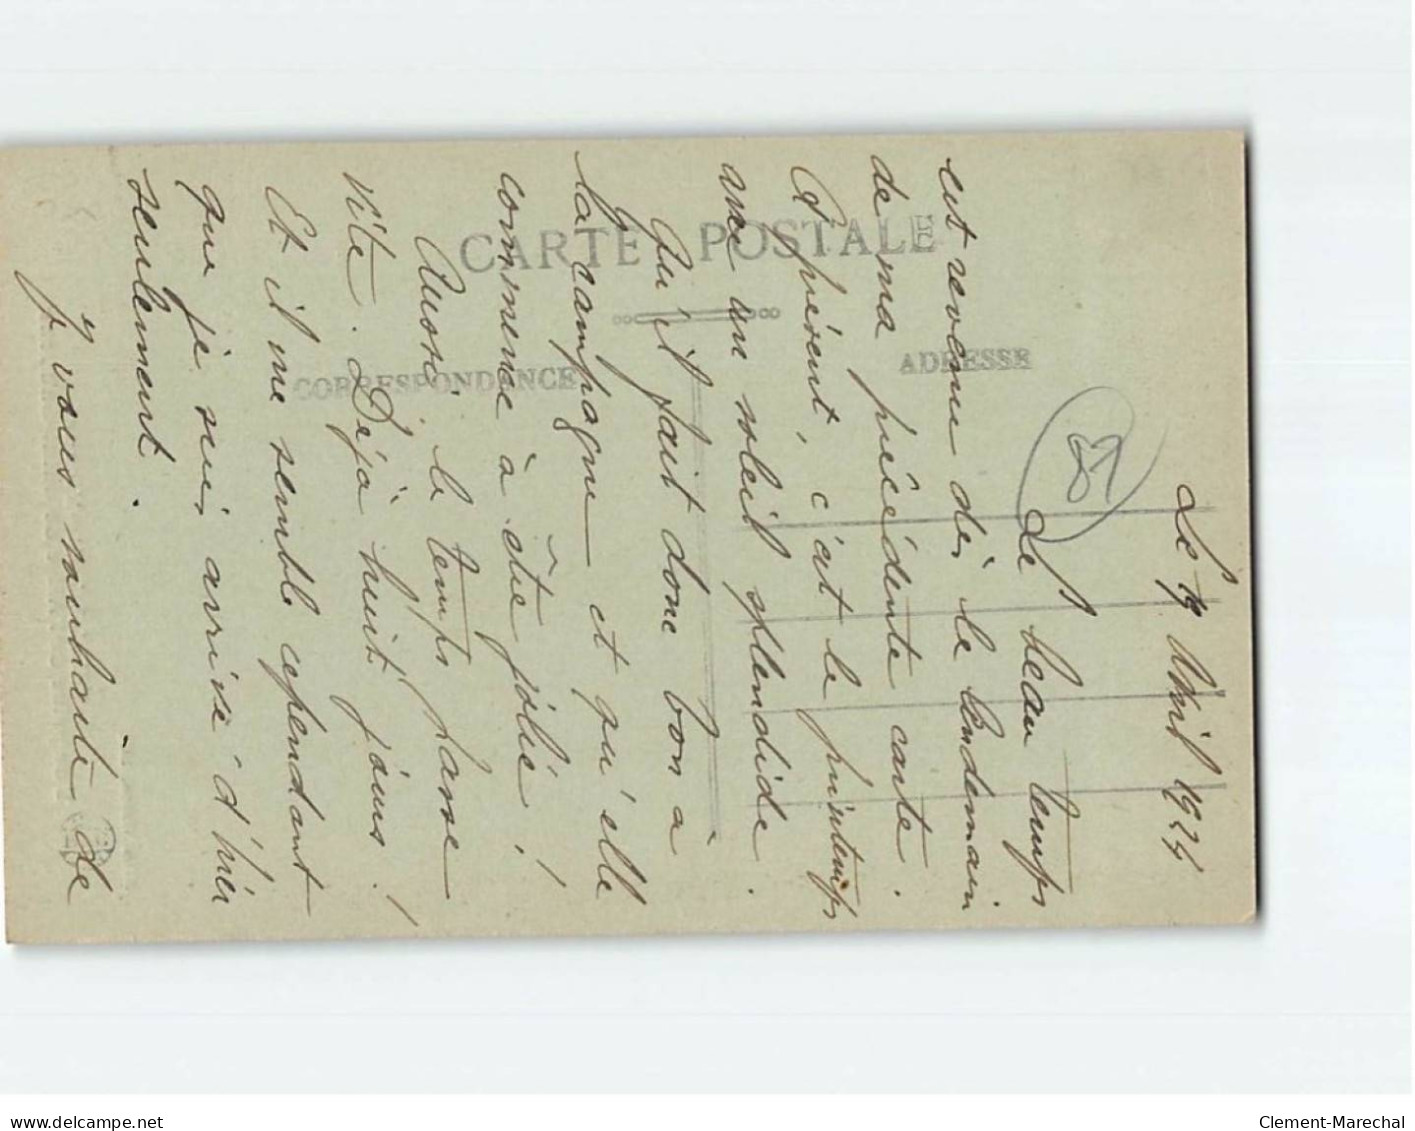 CARTE POSTALE
CORRESPONDANCE
ADRESSE
81
Le 19 Avril 1924
Le beau temps
est revenu dès le lendemain
de ma précédente carte.
A présent, c'est le printemps
avec un soleil splendide.
Qu'il fait donc bon à
la campagne et qu'elle
commence à être jolie !
Aussi le temps passe
vite. Déjà huit jours !
Et il me semble cependant
que je suis arrivé d'hier
seulement.
J vous souhaite de
delcampe.net
Clement-Marechal